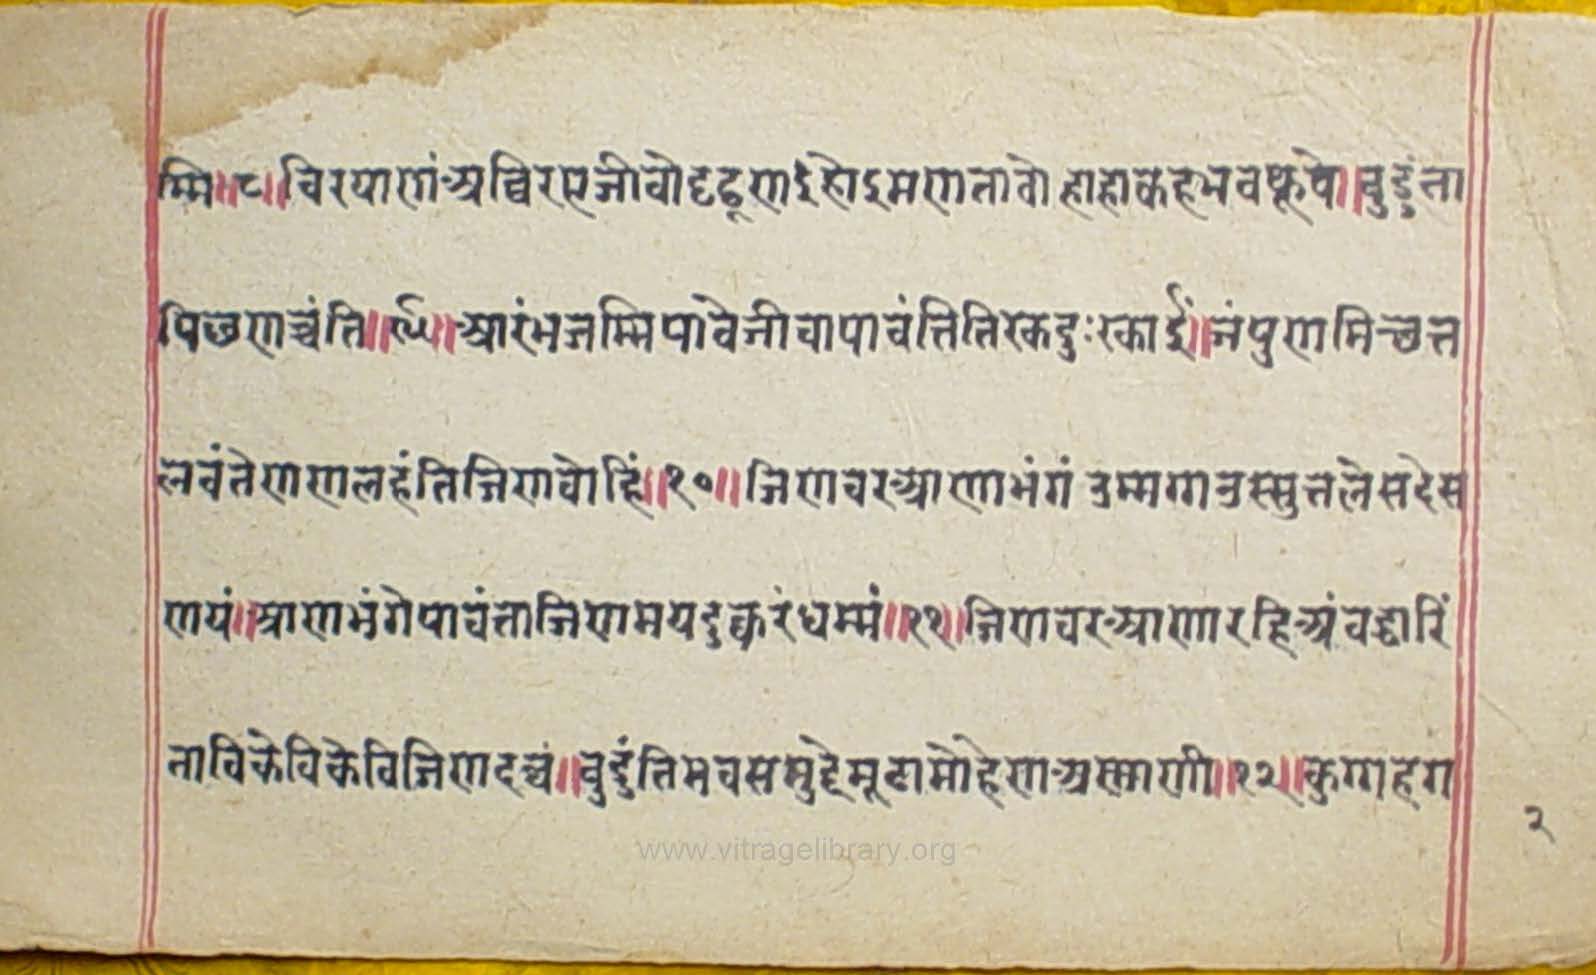 म्मि॥८॥विरयाणंअविरएजीवोदट्ठूणाइहोइमणतावोहाहाकहभवकूवे॥वुड्डंता
पिछणच्चंति॥९॥आरंभजम्मिपावेजीवापावंत्तितिरकदुःरकाई॥जंपुणमिच्छत्त
लवंतेणणलहंतिजिणवोहिं॥१०॥जिणवरआणाभंगंउम्मगाउस्सुत्तलेसदेस
णयं॥आणभंगेपावंत्ताजिणमयदुक्करंधम्मं॥११॥जिणवरआणारहिअंवद्धारिं
ताविकेविकेविजिणदव्वं॥वुड्डंतिभवसमुद्देमूढामोहेणअण्णाणी॥१२॥कुगाहग
२
www.vitragelibrary.org